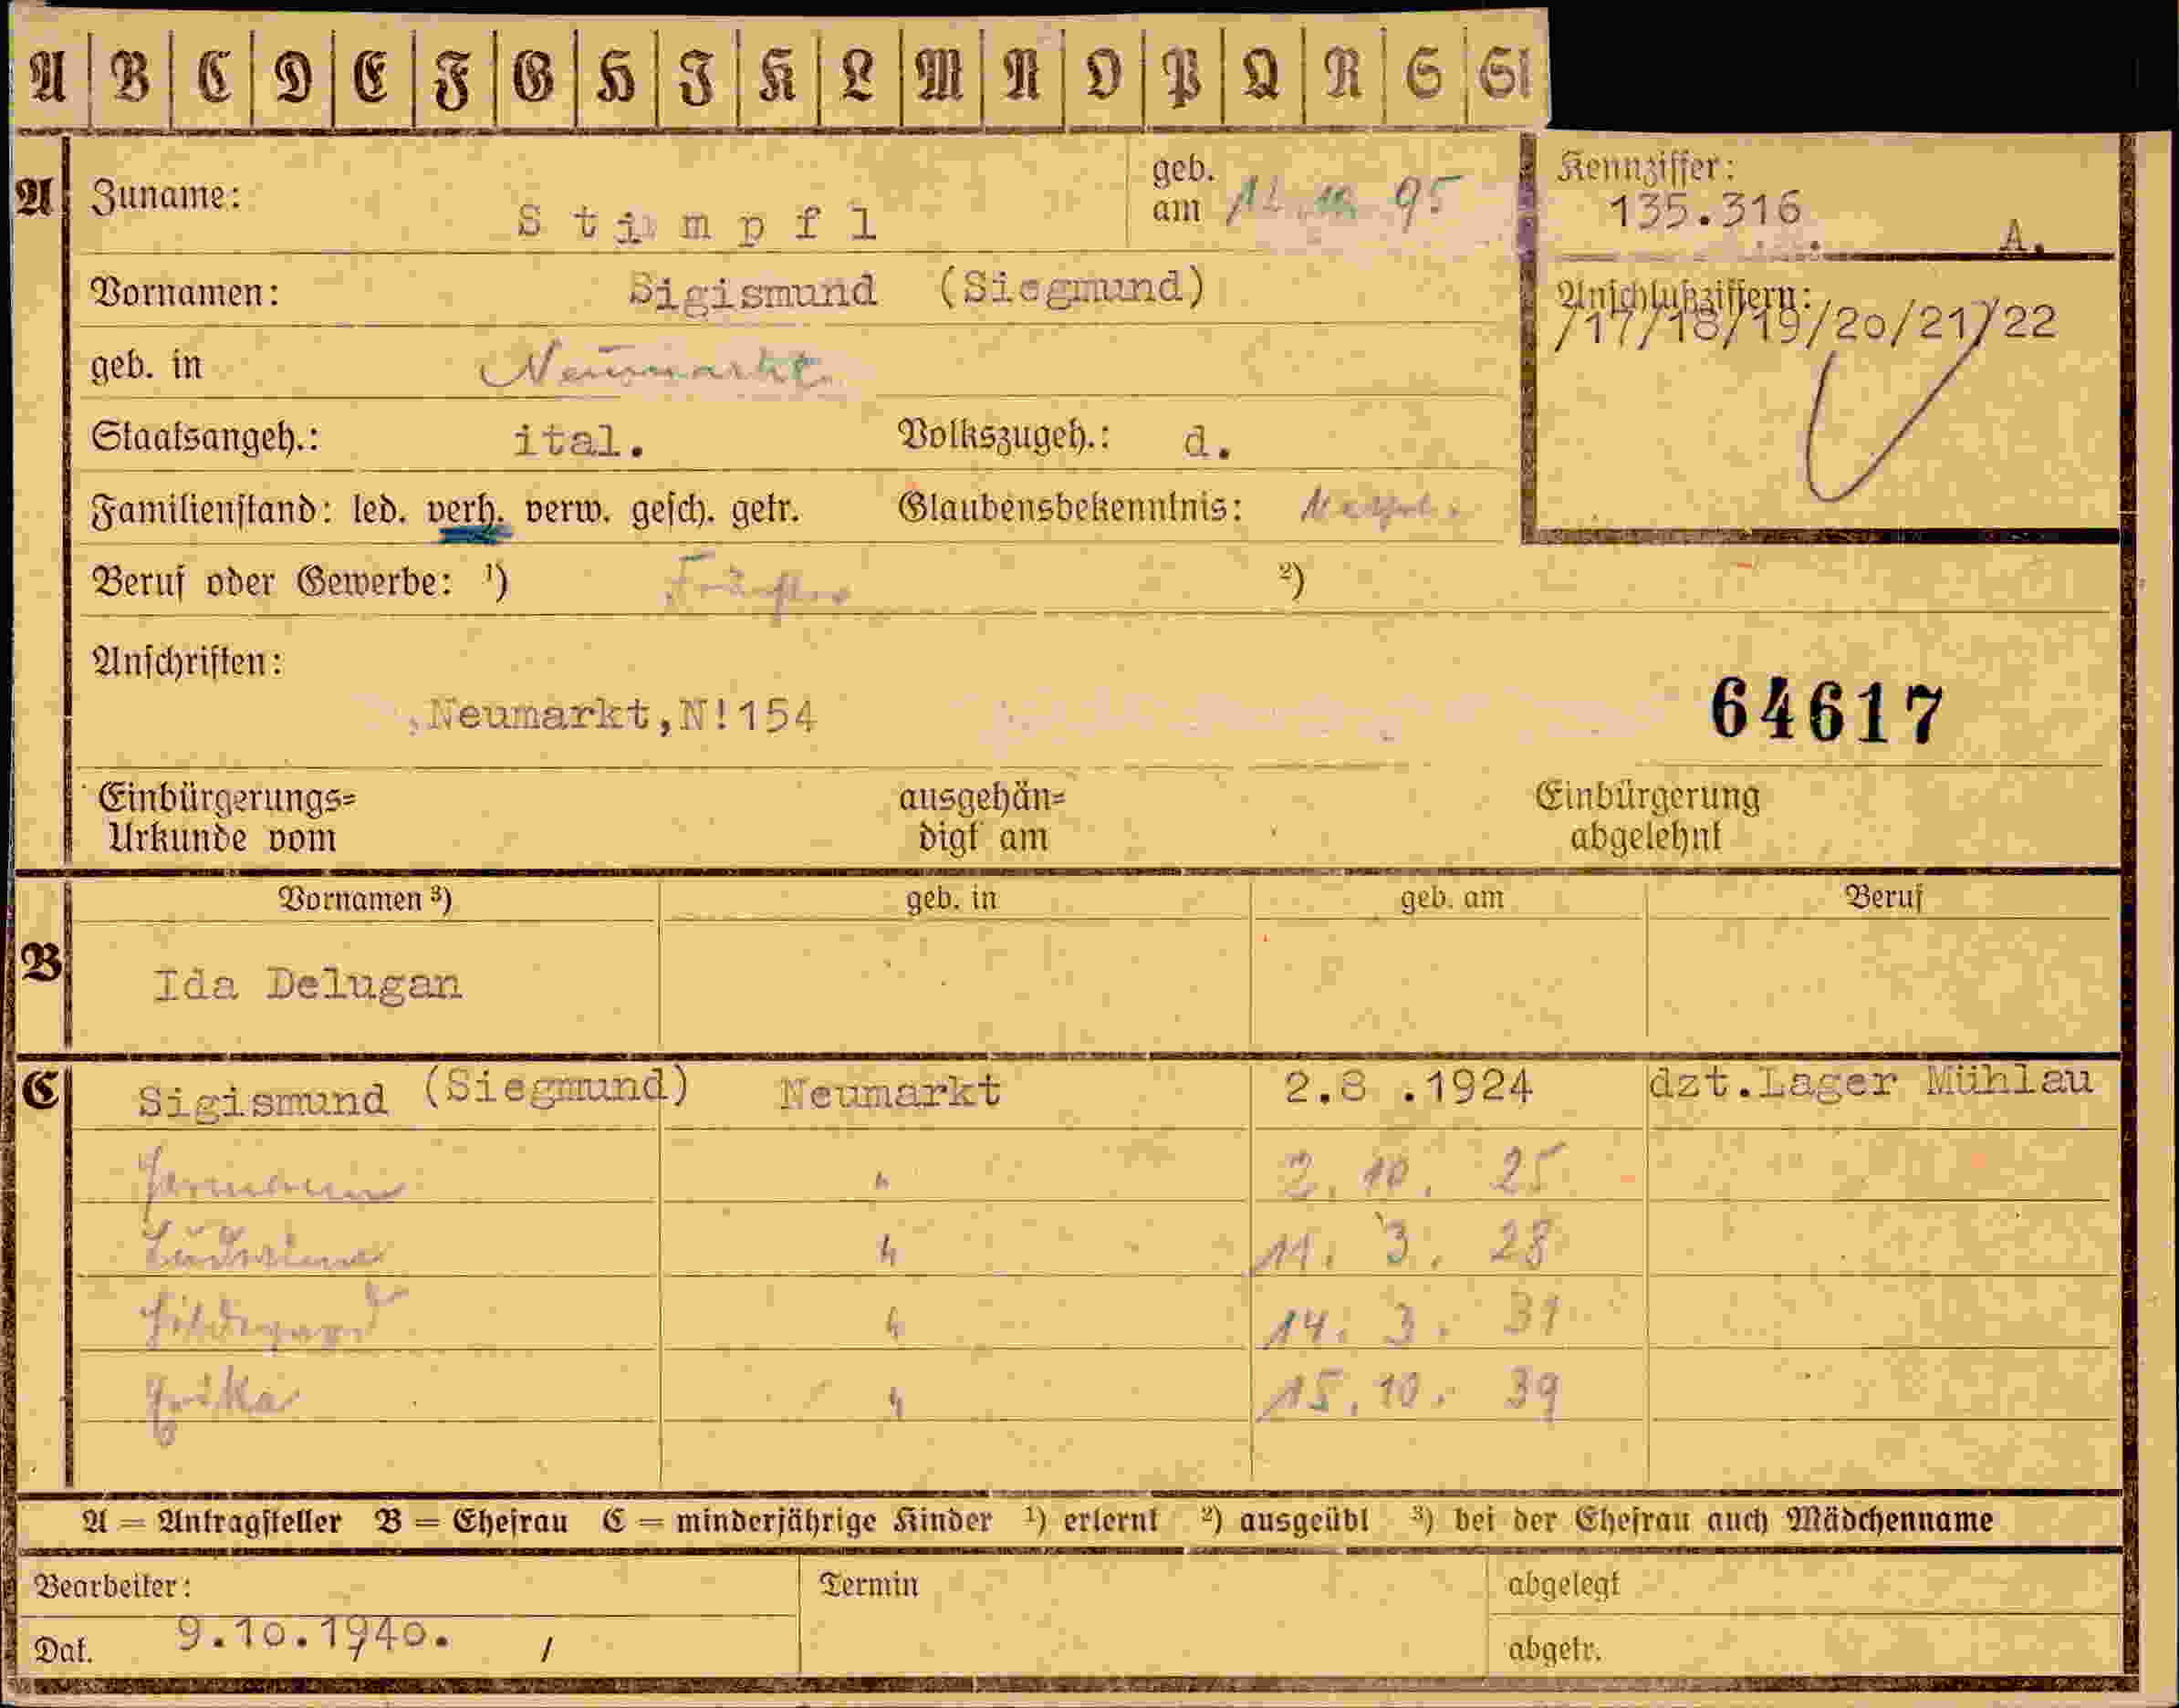 A B C D E F G H I K L M N O P Q R S St
A Zuname: Stimpfl geb. am 95 Kennziffer: 135.316 A.
Vornamen: Sigismund (Siegmund) Anschlußziffern: /17/18/19/20/21/22
geb. in Neumarkt
Staatsangeh.: ital. Volkszugeh.: d.
Familienstand: led. verh. verw. gesch. getr. Glaubensbekenntnis:
Beruf oder Gewerbe: ¹) ²)
Anschriften:
,Neumarkt,N!154 64617
Einbürgerungs= ausgehän= Einbürgerung
Urkunde vom digt am abgelehnt
Vornamen ³) geb. in geb. am Beruf
B Ida Delugan
C Sigismund (Siegmund) Neumarkt 2.8 .1924 dzt.Lager Mühlau
Hermann " 2. 10. 25
" 11. 3. 28
Hildegard " 14. 3. 31
Erika " 15. 10. 39
A = Antragsteller B = Ehefrau C = minderjährige Kinder ¹) erlernt ²) ausgeübt ³) bei der Ehefrau auch Mädchenname
Bearbeiter: Termin abgelegt
Dat. 9.10.1940. / abgetr.